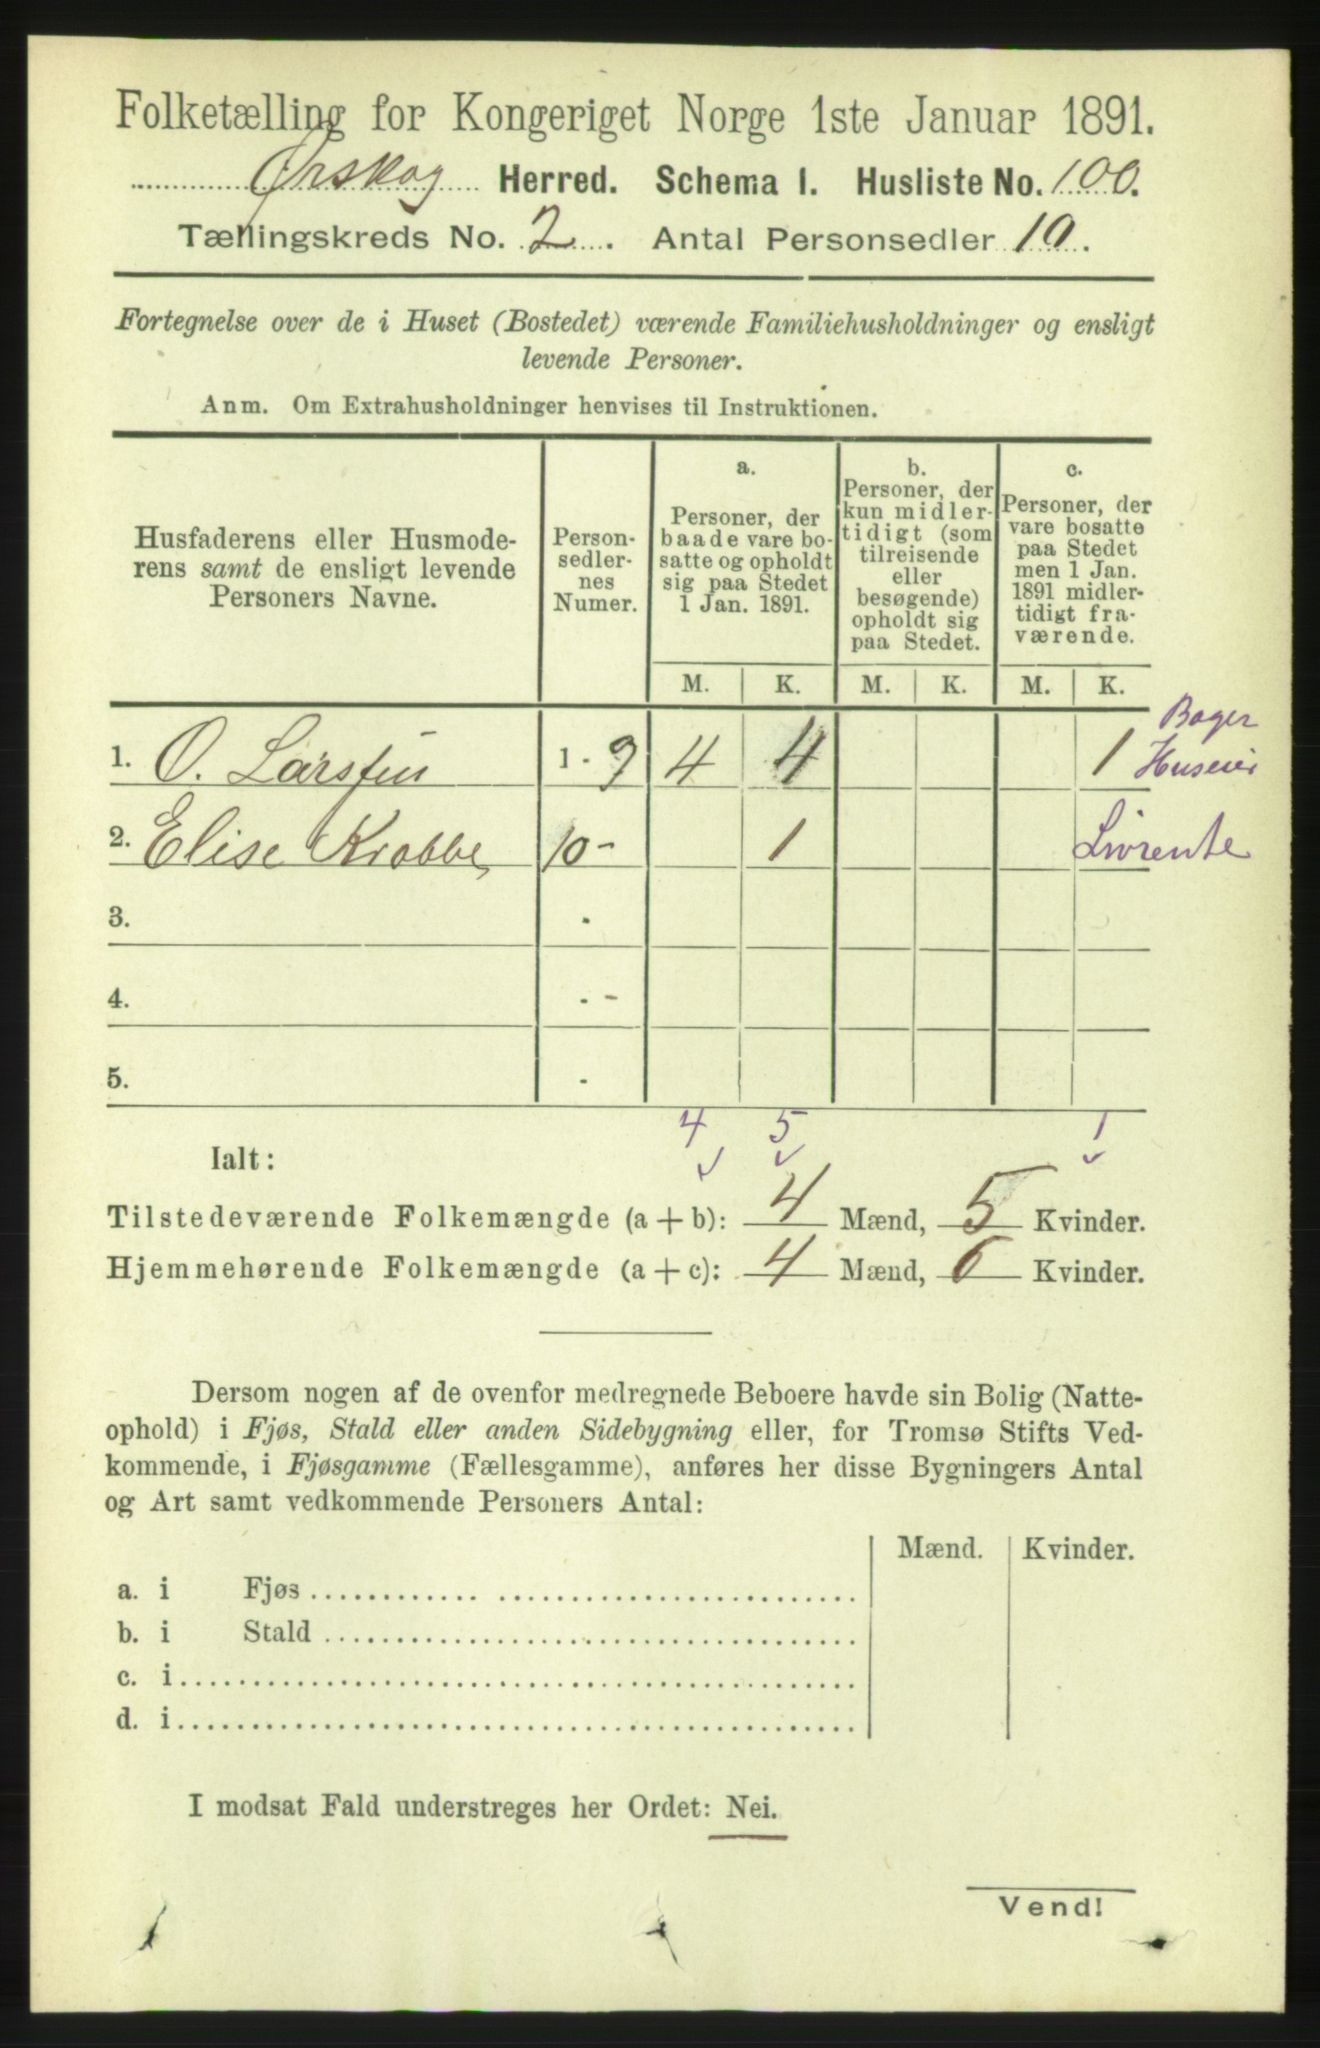 Folketælling for Kongeriget Norge 1ste Januar 1891.
Ørskog Herred. Schema I. Husliste No. 100.
Tællingskreds No. 2. Antal Personsedler 10.
Fortegnelse over de i Huset (Bostedet) værende Familiehusholdninger og ensligt
levende Personer.
Anm. Om Extrahusholdninger henvises til Instruktionen.
Husfaderens eller Husmode-
rens samt de ensligt levende
Personers Navne.
Person-
sedler-
nes
Numer.
a.
Personer, der
baade vare bo-
satte og opholdt
sig paa Stedet
1 Jan. 1891.
b.
Personer, der
kun midler-
tidigt (som
tilreisende
eller
besøgende)
opholdt sig
paa Stedet.
c.
Personer, der
vare bosatte
paa Stedet
men 1 Jan.
1891 midler-
tidigt fra-
værende.
M. K. M. K. M. K.
Bager
1. O. Larsen 1 - 9 4 4 1 Huseier
2. Elise Krabbe 10 - 1 Livrente
3. -
4. - -
5. -
4 5 1
Ialt:
Tilstedeværende Folkemængde (a + b): 4 Mænd, 5 Kvinder.
Hjemmehørende Folkemængde (a + c): 4 Mænd, 6 Kvinder.
Dersom nogen af de ovenfor medregnede Beboere havde sin Bolig (Natte-
ophold) i Fjøs, Stald eller anden Sidebygning eller, for Tromsø Stifts Ved-
kommende, i Fjøsgamme (Fællesgamme), anføres her disse Bygningers Antal
og Art samt vedkommende Personers Antal:
Mænd. Kvinder.
a. i Fjøs
b. i Stald
c. i
d. i
I modsat Fald understreges her Ordet: Nei.
Vend!